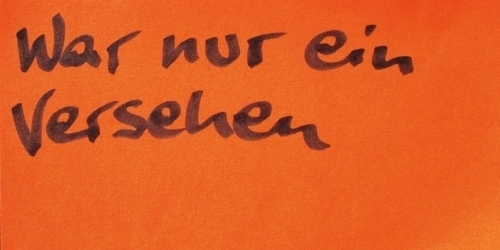 War nur ein
Versehen